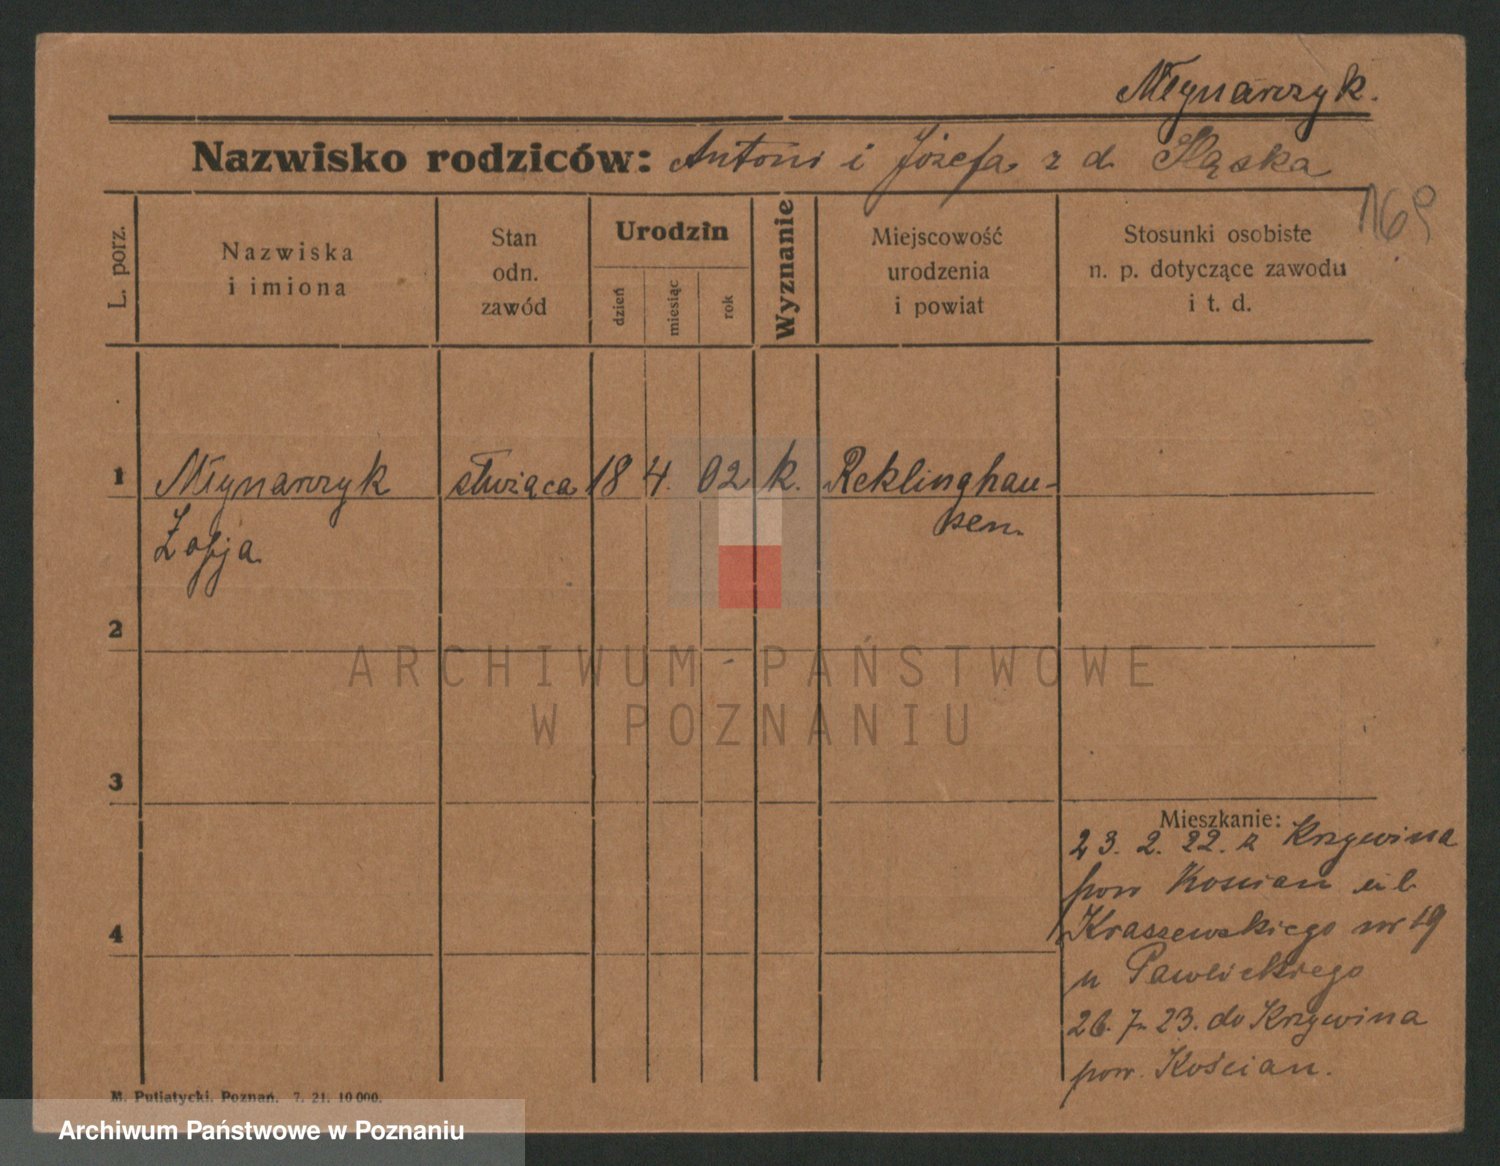 Młynarczyk.
Nazwisko rodziców: Antoni i Józefa z d. Śląska
169
L. porz.
Nazwiska
i imiona
Stan
odn.
zawód
Urodzin
dzień
miesiąc
rok
Wyznanie
Miejscowość
urodzenia
i powiat
Stosunki osobiste
n. p. dotyczące zawodu
i t. d.
1 Młynarczyk służąca 18 4. 02 k. Reklinghau-
sen.
Zofja
2
ARCHIWUM PAŃSTWOWE
W POZNANIU
3
Mieszkanie:
23. 2. 22. z Krzywina
pow Kościan ul.
4
Kraszewskiego nr 19
u Pawlickiego
26. 7. 23. do Krzywina
pow. Kościan.
M. Putiatycki, Poznań. 7. 21. 10 000.
Archiwum Państwowe w Poznaniu